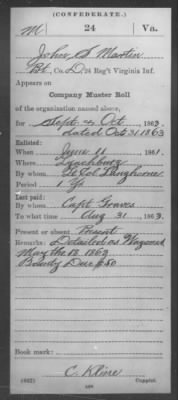 (CONFEDERATE.)
M 24 Va.
John S Martin
Pvt, Co. D, 24 Reg't Virginia Inf.
Appears on
Company Muster Roll
of the organization named above,
for Sept & Oct, 1863.
dated Oct 31 1863
Enlisted:
When June 11, 1861.
Where Lynchburg
By whom Lt Col Langhorne
Period 1 yr
Last paid:
By whom Capt Graves
To what time Aug 31, 1863.
Present or absent Present
Remarks: Detailed as Wagoner
May the 12 1863
Bounty Due $50
Book mark:
C. Kline
(642) Copyist.